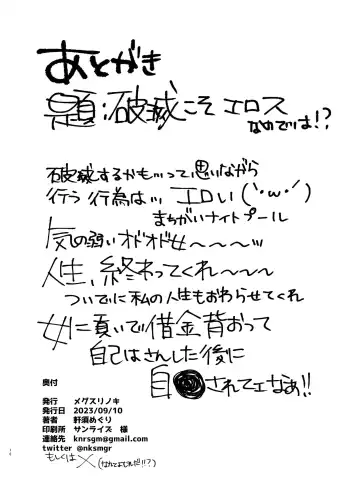 あとがき
題:破滅こそエロス
なのでは!?
破滅するかも…って思いながら
行う行為は…エロい(`・ω・´)
まちがいナイトプール
気の弱いオドオド女〜〜〜〜…
人生、終わってくれ〜〜〜
ついでに私の人生もおわらせてくれ
女に貢いで借金背おって
自己はさんした後に
自●されてェなあ!!
奥付
発行 メグスリノキ
発行日 2023/09/10
著者 軒須めぐり
印刷所 サンライズ 様
連絡先 knrsgm@gmail.com
twitter @nksmgr
もしくはX(なんてよべばいいんだ!!?)